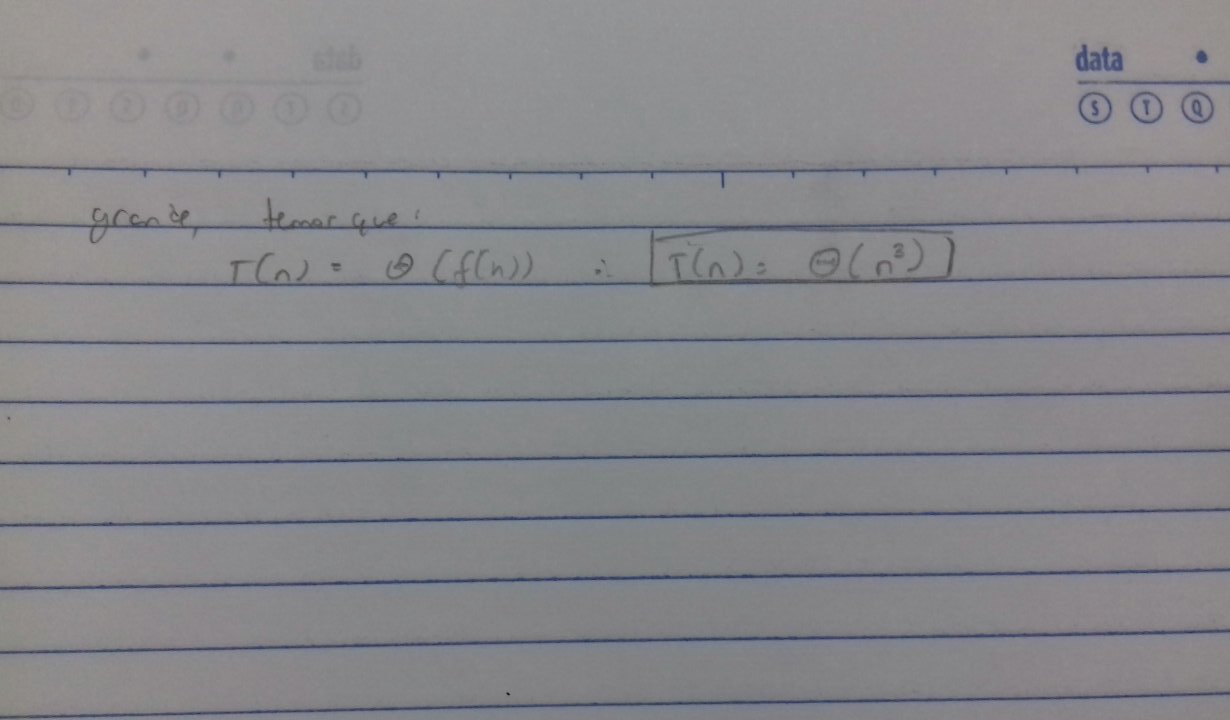 data
S T Q
grande, temos que:
T(n) = Θ(f(n)) ∴ T(n) = Θ(n³)